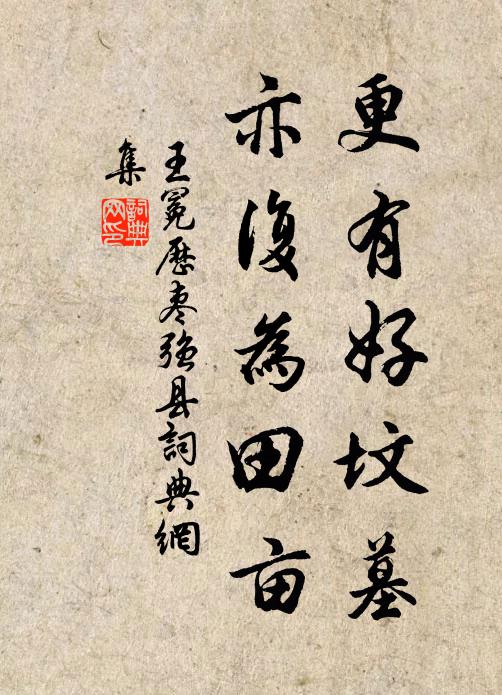 更有好坟墓
亦復為田亩
王冕歷枣强县詞典網
集
詞典網印